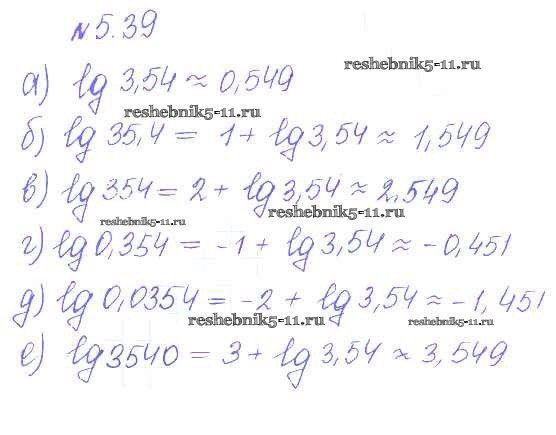 №5.39
а) lg 3,54 ≈ 0,549
reshebnik5-11.ru
reshebnik5-11.ru
б) lg 35,4 = 1 + lg 3,54 ≈ 1,549
в) lg 354 = 2 + lg 3,54 ≈ 2,549
reshebnik5-11.ru
reshebnik5-11.ru
г) lg 0,354 = -1 + lg 3,54 ≈ -0,451
д) lg 0,0354 = -2 + lg 3,54 ≈ -1,451
reshebnik5-11.ru
reshebnik5-11.ru
е) lg 3540 = 3 + lg 3,54 ≈ 3,549